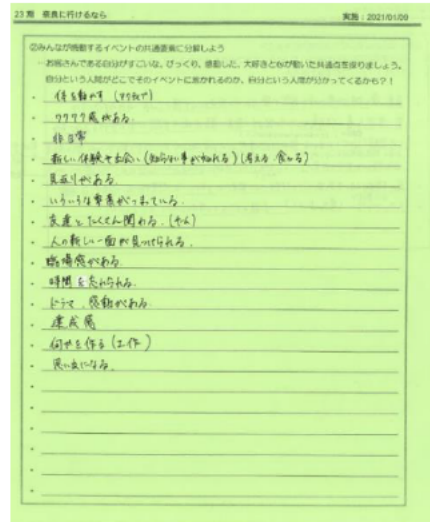 23期 奈良に行けるなら
実施：2021/01/09
②みんなが感動するイベントの共通要素に分解しよう
…お客さんである自分がすごいな、びっくり、感動した、大好きと心が動いた共通点を探りましょう。
自分という人間がどこでそのイベントに惹かれるのか、自分という人間が分かってくるかも？！
・体を動かす
・ワクワク感がある。
・非日常
・新しい体験や出会い(知らない事が知れる)(考える 食べる)
・見返りがある。
・いろいろな要素がつまっている
・友達とたくさん関わる。
・人の新しい一面が見つけられる。
・臨場感がある
・時間を忘れられる。
・ドラマ、感動がある。
・達成感
・何かを作る(工作)
・思い出になる。
・
・
・
・
・
・